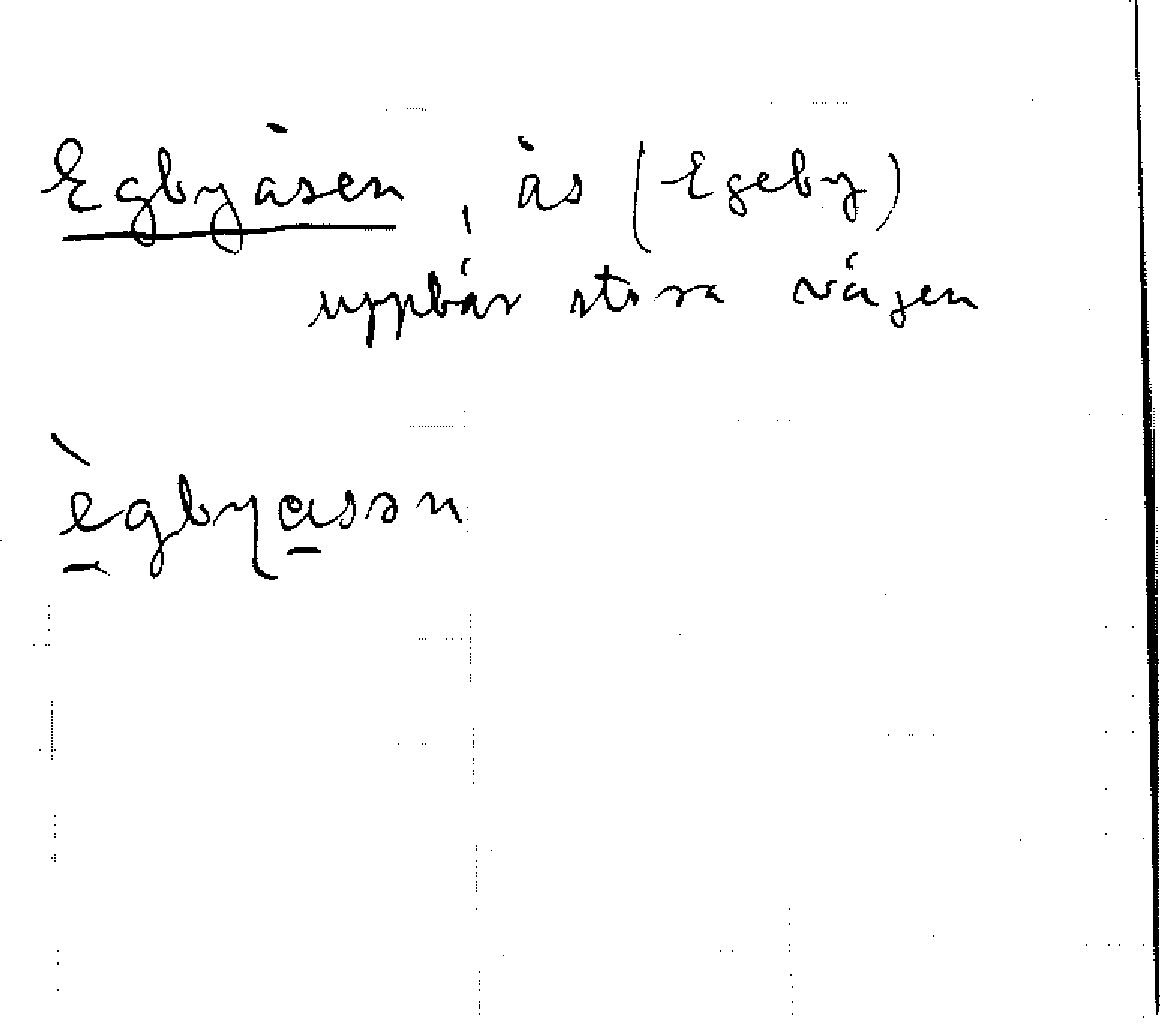 Egbyåsen, ås (Egeby)
uppbär stora vägen
ègbyasən